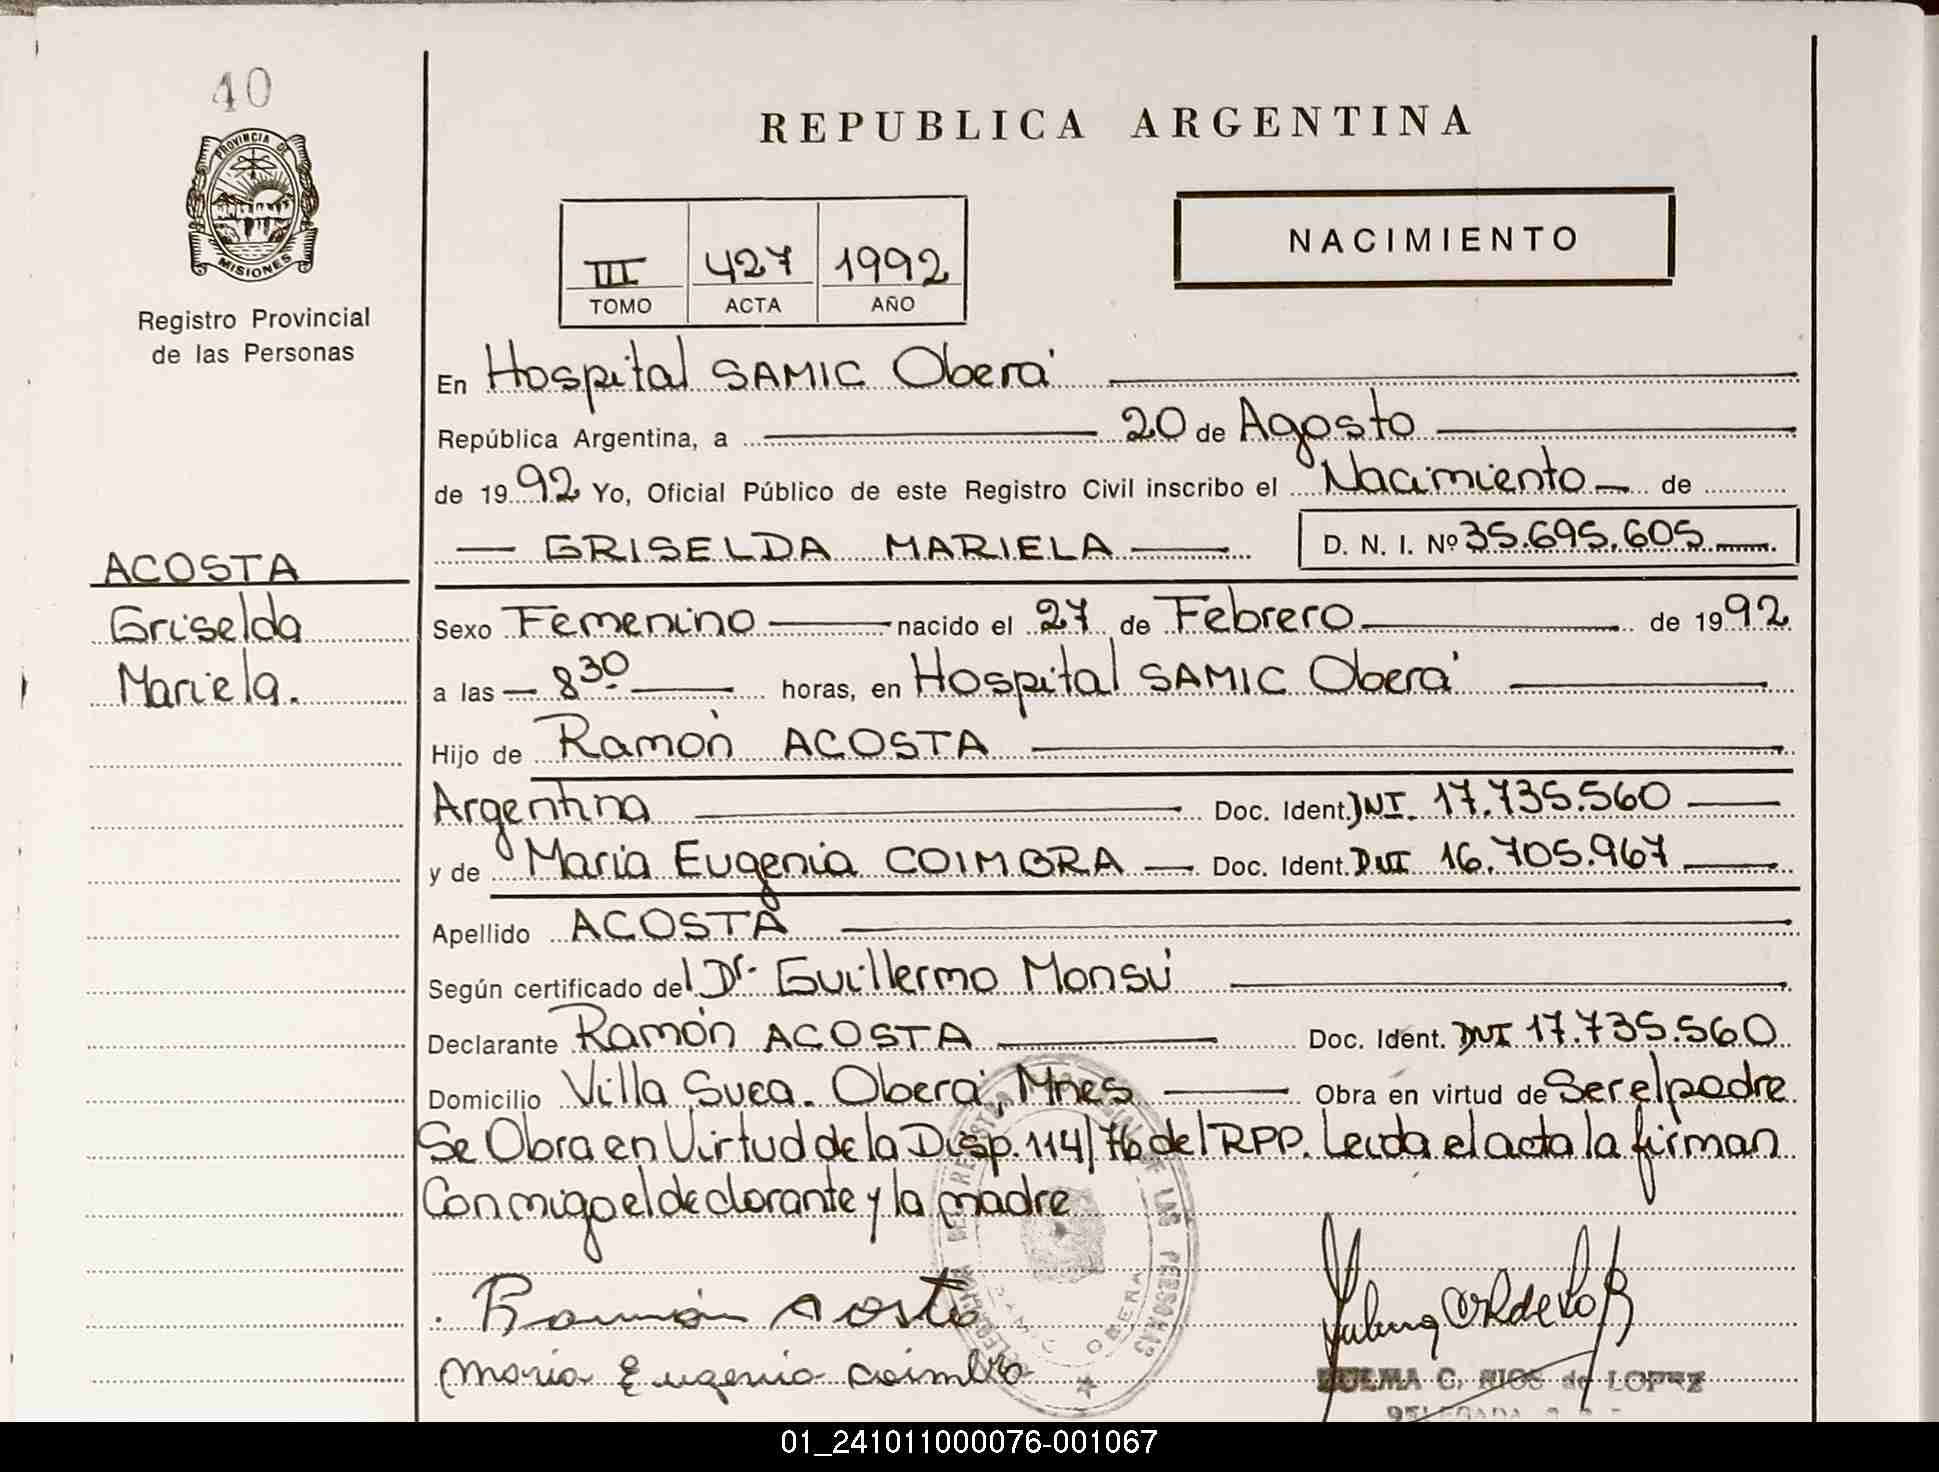 40
PROVINCIA DE
MISIONES
Registro Provincial
de las Personas
REPUBLICA ARGENTINA
III 427 1992
TOMO ACTA AÑO
NACIMIENTO
En Hospital SAMIC Oberá
República Argentina, a 20 de Agosto
de 1992 Yo, Oficial Público de este Registro Civil inscribo el Nacimiento de
GRISELDA MARIELA D. N. I. Nº 35.695.605
ACOSTA
Griselda
Mariela.
Sexo Femenino nacido el 27 de Febrero de 1992
a las 8 30 horas, en Hospital SAMIC Oberá
Hijo de Ramón ACOSTA
Argentina Doc. Ident. DNI. 17.735.560
y de Maria Eugenia COIMBRA Doc. Ident. DNI 16.705.967
Apellido ACOSTA
Según certificado del Dr. Guillermo Monsú
Declarante Ramón ACOSTA Doc. Ident. DNI 17.735.560
Domicilio Villa Svea. Oberá, Mnes Obra en virtud de Ser el padre
Se Obra en Virtud de la Disp. 114/76 del RPP. Leida el acta la firman
Conmigo el declarante y la madre
Ramón Acosta
Maria Eugenia Coimbra
DELEGACION DEL REGISTRO DE LAS PERSONAS
OBERA
C. RIOS de LOPEZ
01_241011000076-001067